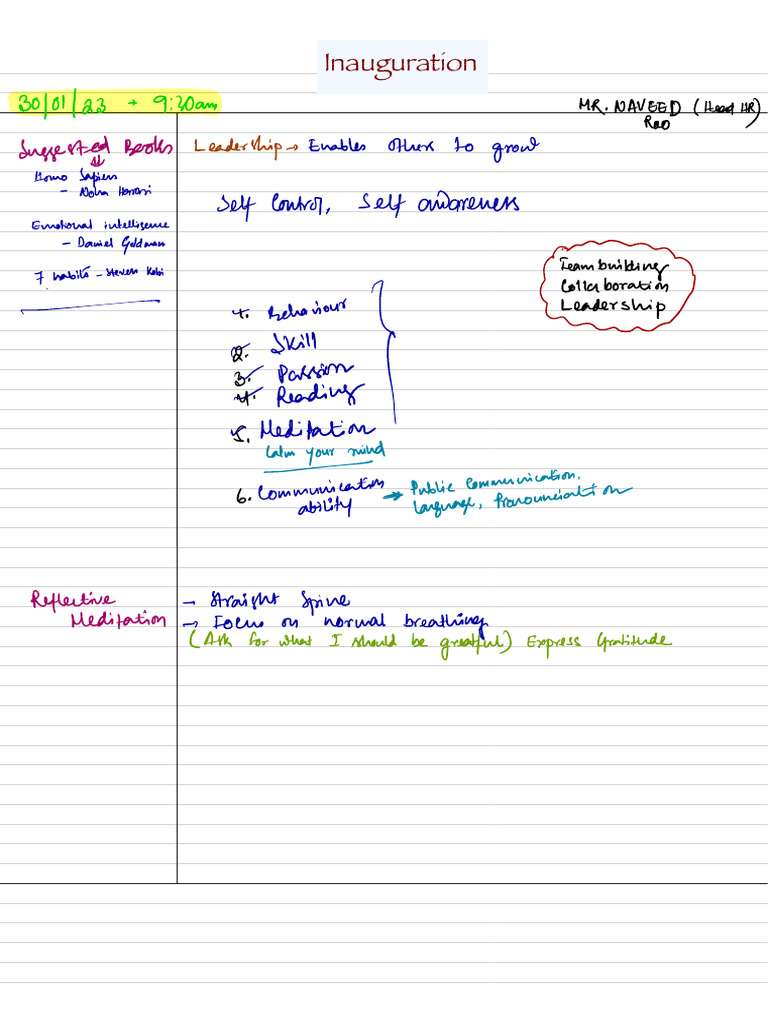 Inauguration
30/01/23 → 9:30am
MR. NAVEED (Head HR)
Rao
Suggested Books
Homo Sapiens
- Noha Harrari
Emotional intelligence
- Daniel Goldman
7 habits - Steven Kobi
Leadership → Enables others to grow
Self Control, Self awareness
Teambuilding
Collaboration
Leadership
1. Behaviour
2. Skill
3. Passion
4. Reading
5. Meditation
Calm your mind
6. Communication
ability
→ Public Communication,
Language, Pronounciation
Reflective
Meditation
→ Straight Spine
→ Focus on normal breathing
(Ask for what I should be greatful) Express Gratitude